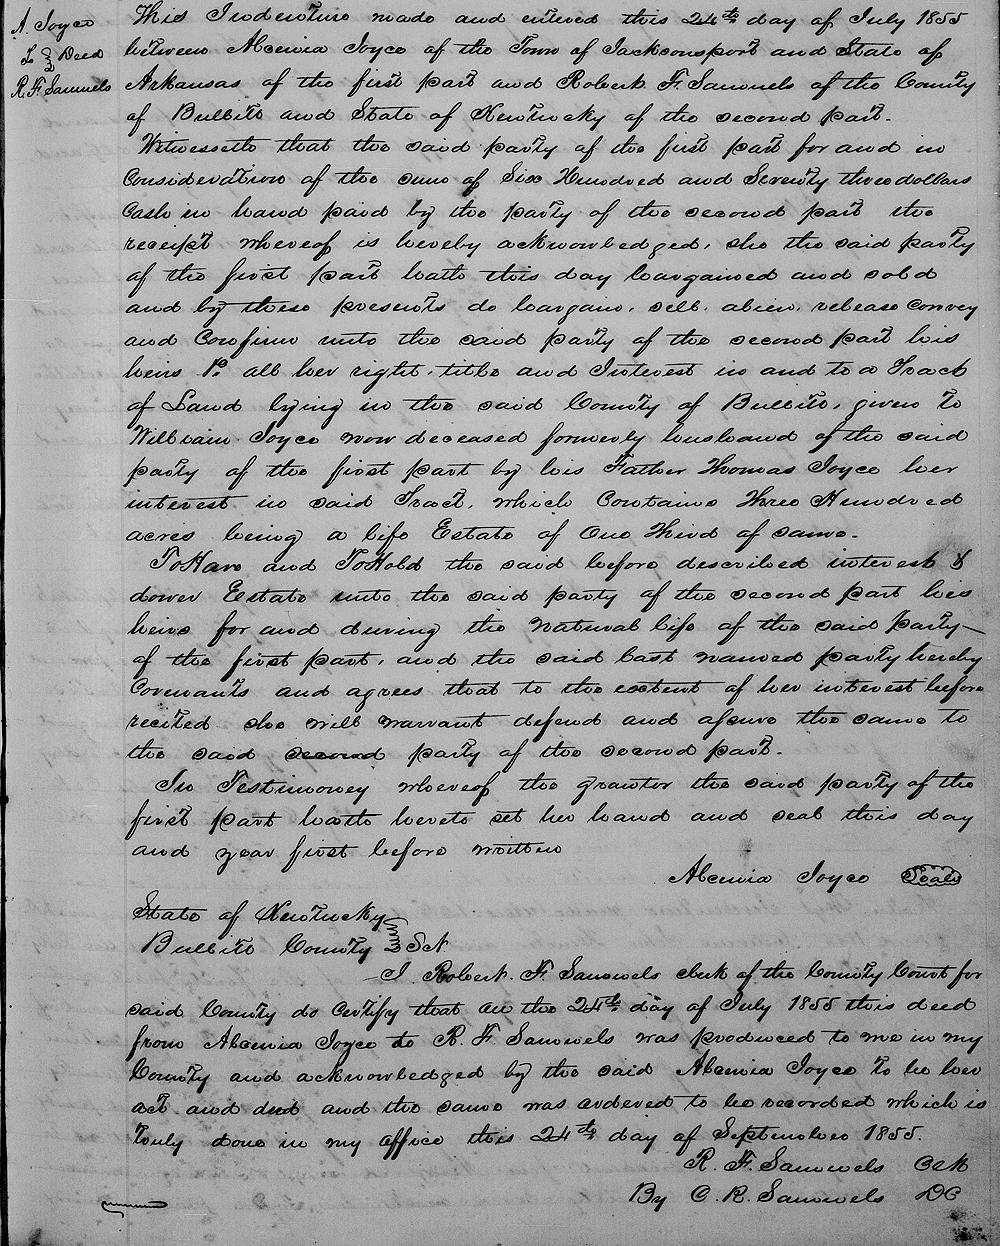 A. Joyce
To } Deed
R. F. Samuels
This Indenture made and entered this 24th day of July 1855
between Alcenia Joyce of the Town of Jacksonsport and State of
Arkansas of the first part and Robert F. Samuels of the County
of Bullitt and State of Kentucky of the second part.
Witnesseth that the said party of the first part for and in
Consideration of the sum of Six Hundred and Seventy three dollars
Cash in hand paid by the party of the second part the
receipt whereof is hereby acknowledged, she the said party
of the first part hath this day bargained and sold
and by these presents do bargain, sell, alien, release convey
and Confirm unto the said party of the second part his
heirs &c. all her right, title and Interest in and to a Track
of Land lying in the said County of Bullitt, given to
William Joyce now deceased formerly husband of the said
party of the first part by his Father Thomas Joyce her
interest in said Tract, which Contains Three Hundred
acres being a life Estate of One Third of same.
To Have and To Hold the said before described interest &
dower Estate unto the said party of the second part his
heirs for and during the natural life of the said party
of the first part, and the said last named party hereby
Covenants and agrees that to the extent of her interest before
recited she will warrant defend and assure the same to
the said second party of the second part.
In Testimoney whereof the grantor the said party of the
first part hath hereto set her hand and seal this day
and year first before written
Alcenia Joyce Seal
State of Kentucky
Bullitt County } Sct
I Robert. F. Samuels clerk of the County Court for
said County do Certify that on the 24th day of July 1855 this deed
from Alcenia Joyce to R. F. Samuels was produced to me in my
County and acknowledged by the said Alcenia Joyce to be her
act and deed and the same was ordered to be recorded which is
truly done in my office this 24th day of September 1855.
R. F. Samuels Clk
By C. R. Samuels DC